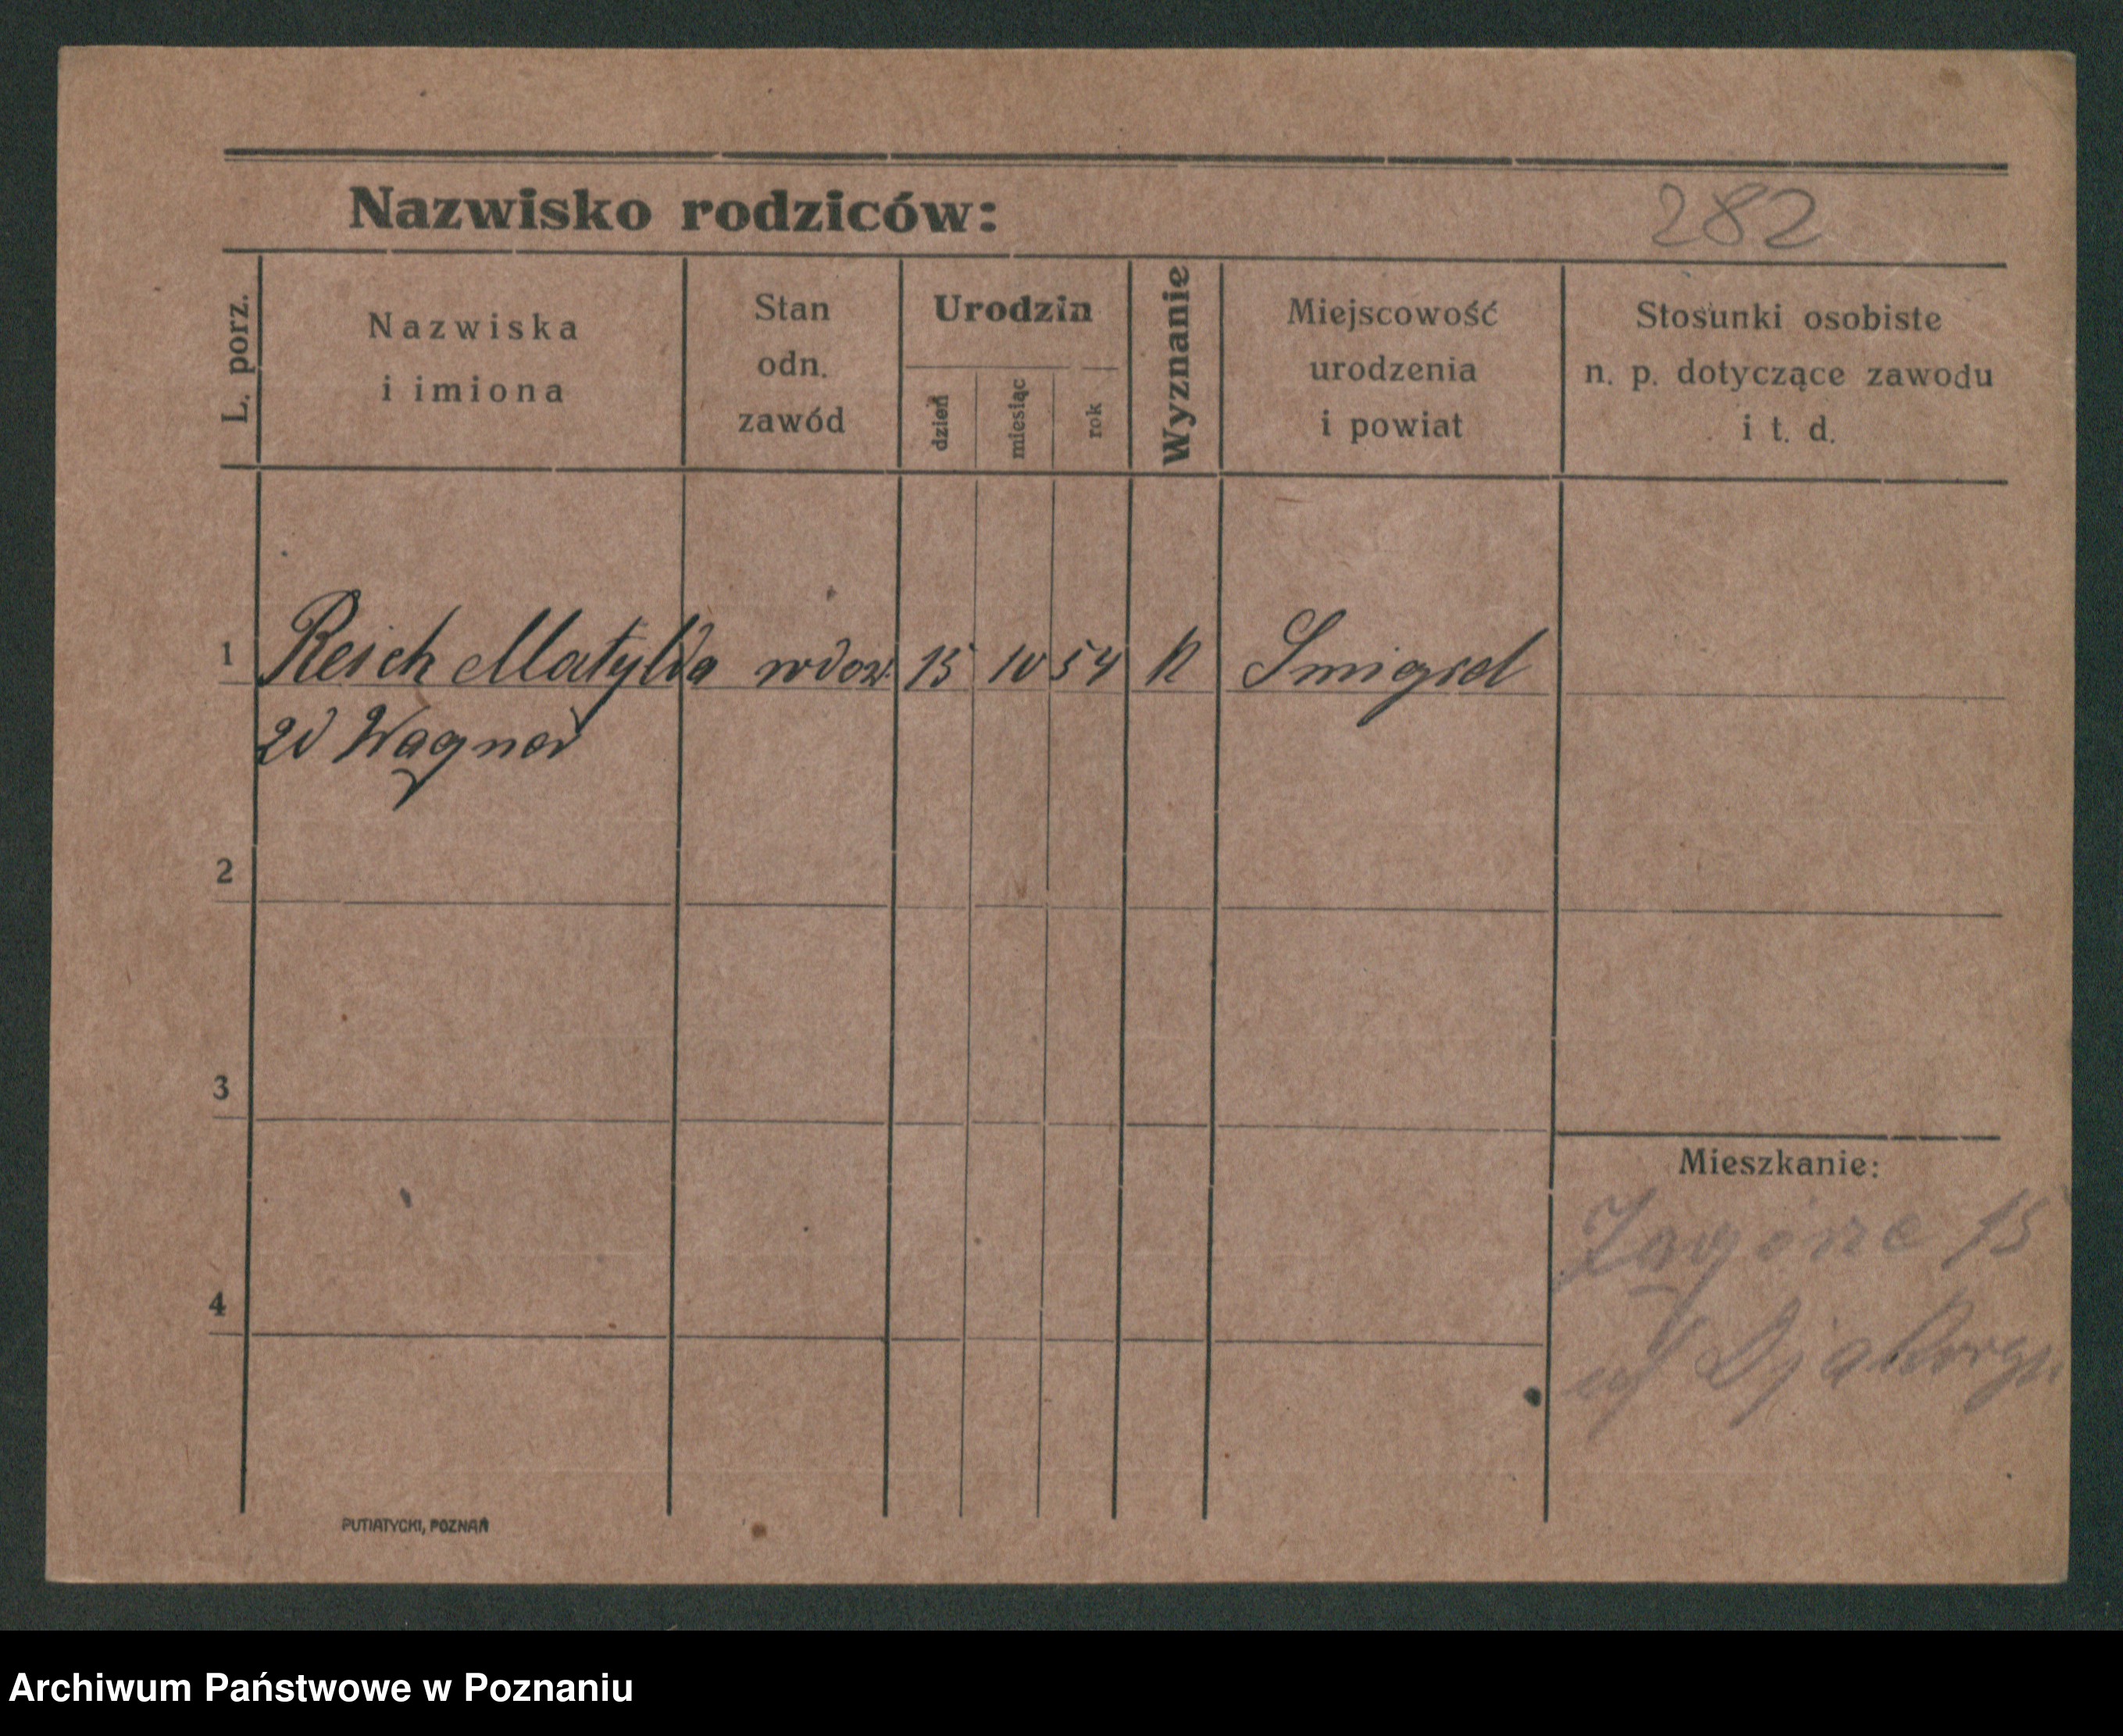 Nazwisko rodziców:
282
L. porz.
Nazwiska
i imiona
Stan
odn.
zawód
Urodzin
dzień
miesiąc
rok
Wyznanie
Miejscowość
urodzenia
i powiat
Stosunki osobiste
n. p. dotyczące zawodu
i t. d.
1 Reich Matylda wdow. 15 10 54 k Smigiel
Wagner
2
3
Mieszkanie:
Zagórze 15
4
PUTIATYCKI, POZNAŃ
Archiwum Państwowe w Poznaniu